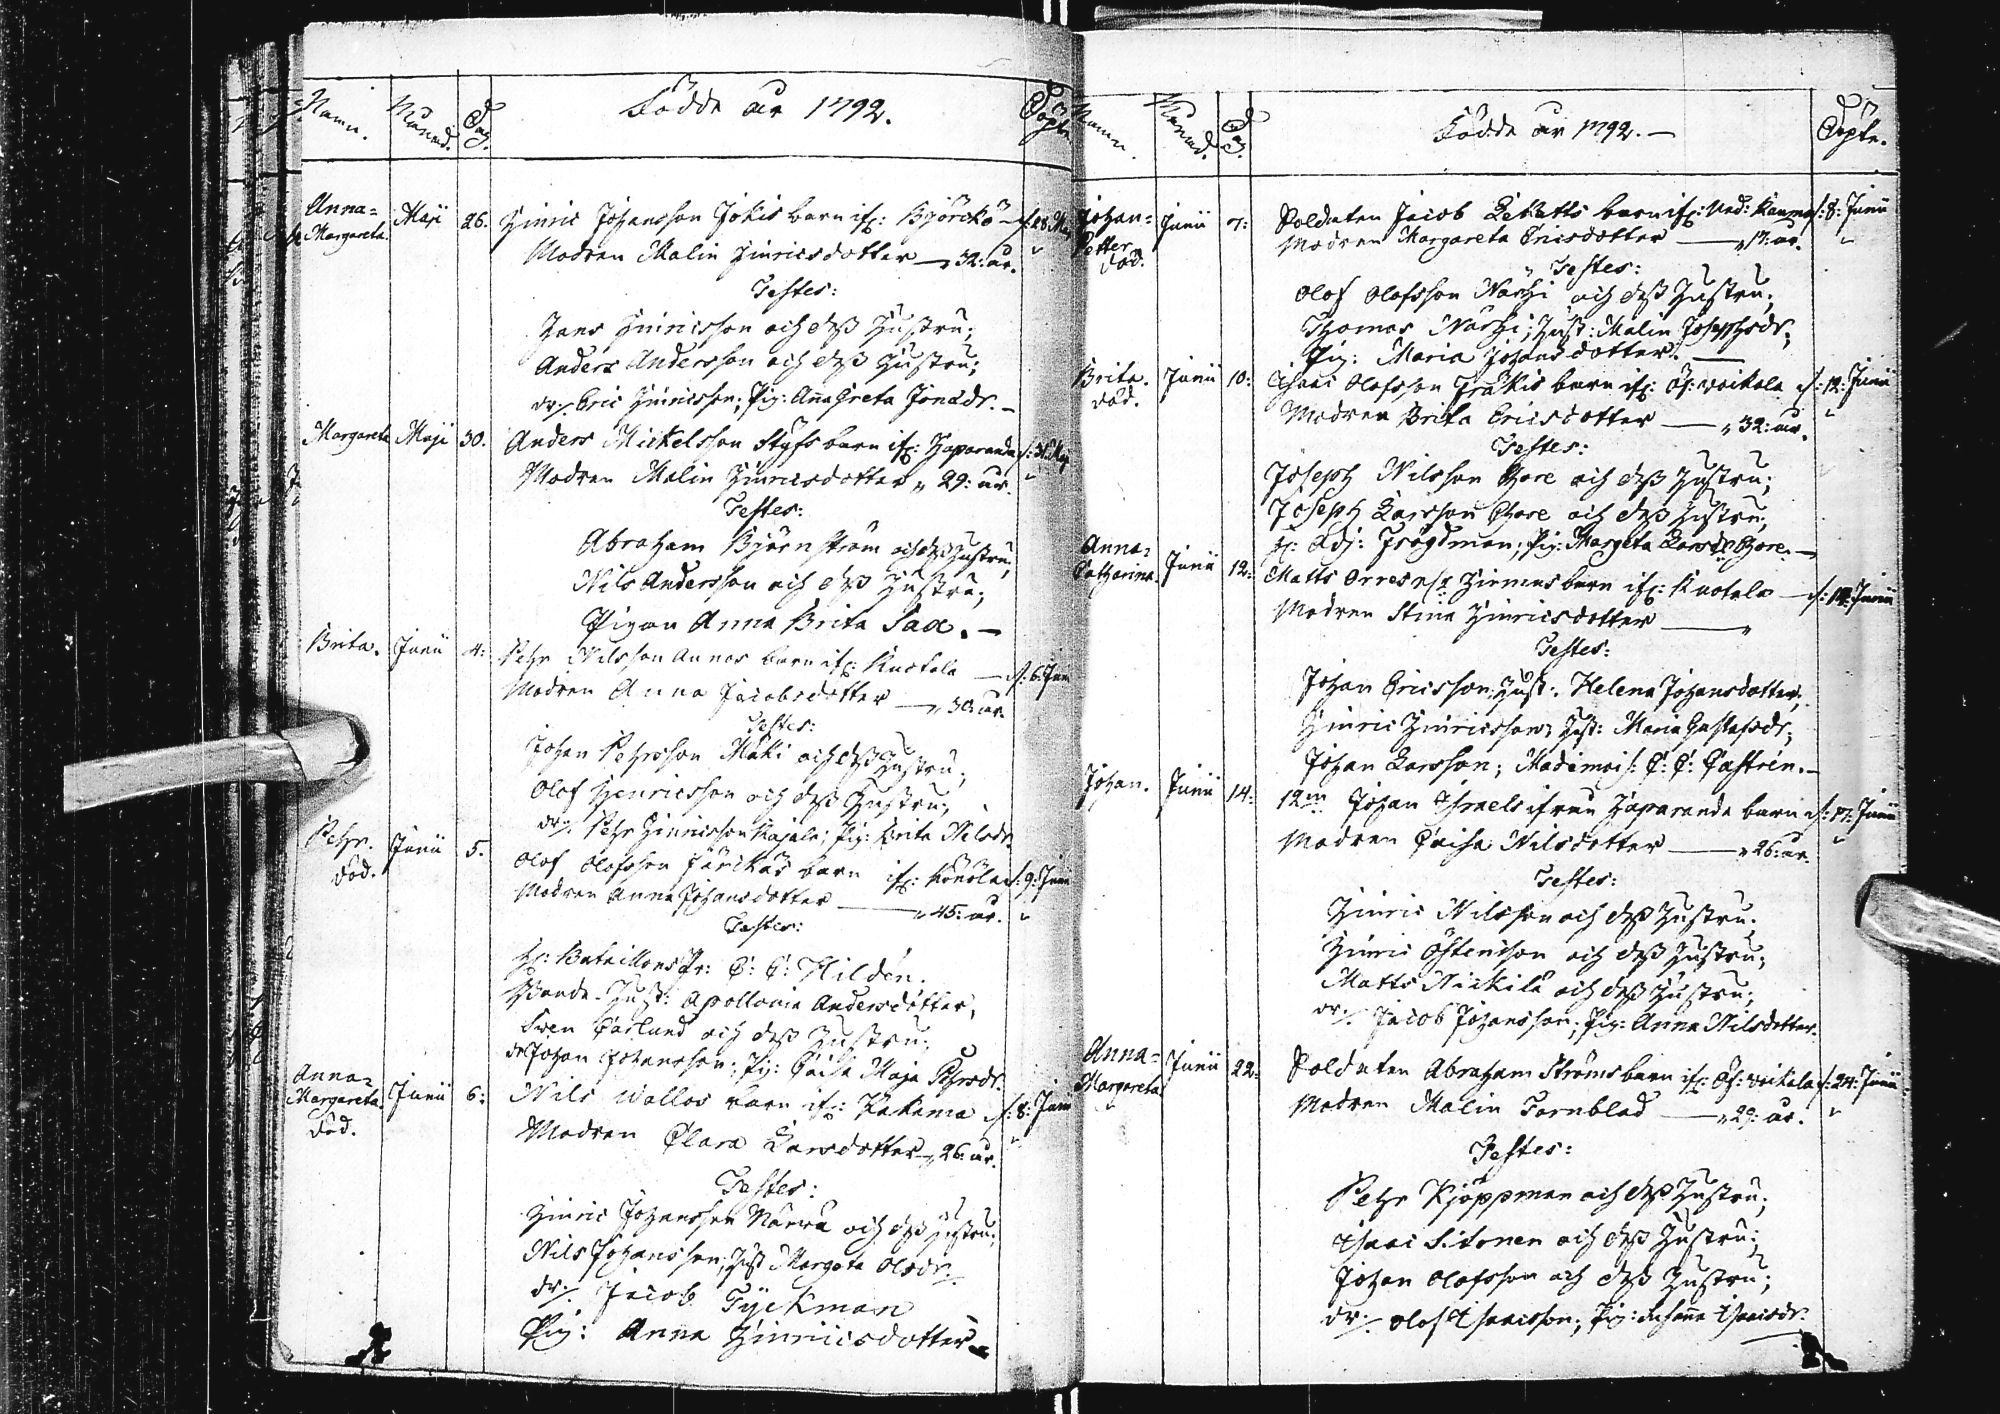 Namn. Månad. Dag. Födde år 1792. Döpte
Anna= Maji 26. Hinric Johansson Jokis barn ifr: Björckö d: 28 Maj
Margareta. Modren Malin Hinricsdotter — „ 32: år. „
Testes:
Hans Hinricsson och dess Hustru;
Anders Andersson och dess Hustru;
dr/. Eric Hinricsson; Pig: Anna Greta Jonædr. —
Margareta Maji 30. Anders Mickelsson Styfs barn ifr: Haparanda d: 31: Maj
Modren Malin Hinricsdotter „ 29: år. „
Testes:
Abraham Björnström och dess Hustru;
Nils Andersson och dess Hustru;
Pigan Anna Brita Sax. —
Brita. Junii 4: Pehr Nilsson Annas barn ifr: Knotala — d: 6: Jun
Modren Anna Jacobsdotter — „ 30: år.
Testes:
Johan Pehrsson Mäki och dess Hustru;
Olof Henricsson och dess Hustru;
dr/. Pehr Hinricsson Kajala; Pig: Brita Nilsdr.
Pehr. Junii 5. Olof Olofsson Järckäs barn ifr: Könöla d: 9: Juni
död. Modren Anna Johansdotter — „ 45: år. „
Testes:
Hr: Bataillons Pr: C: C: Hildén.
Bonde-Hust: Apollonia Andersdotter,
Swen Carlund och dess Hustru;
dr Johan Johansson; Pig: Caisa Maja Pehrsdr.
Anna= Junii 6: Nils Wallos barn ifr: Kackama d: 8: Juni
Margareta. Modren Clara Larsdotter — „ 26: år. „
död.
Testes:
Hinric Johansson Narra och dess Hustru;
Nils Johansson; Hust Margeta Olsdr.
dr/. Jacob Tyckman
Pig: Anna Hinricsdotter
Namn. Månad. Dag. Födde år 1792. — Döpte.
Johan= Junii 7: Soldaten Jacob Lekatts barn ifr: Ned: Wojma d: 8: Junii
Petter Modren Margareta Ericsdotter — „ 17: år. „
död.
Testes:
Olof Olofsson Närhi och dess Hustru;
Thomas Närhi; Hust: Malin Josephsdr;
Pig: Maria Johansdotter. —
Brita. Junii 10: Isaac Olofsson Fräkis barn ifr: Öf: Woikala d: 12: Junii
död. Modren Brita Ericsdotter — „ 32: år. „
Testes:
Joseph Nilsson Thore och dess Hustru;
Joseph Larsson Thore och dess Hustru;
Hr: Adj: Frögdman; Pig: Margeta Larsdr Thore. —
Anna= Junii 12: Matts Hirmus barn ifr: Knotala — d: 14: Junii
Catharina. Modren Stina Hinricsdotter — „
Testes:
Johan Ericsson; Hust: Helena Johansdotter;
Hinric Hinricsson; Hust: Maria Gustafsdr;
Johan Larsson; Madimois: C: C: Castrén. —
Johan. Junii 14: Johan Israels ifrån Haparanda barn d: 17: Junii
Modren Caisa Nilsdotter — „ 26: år. „
Testes:
Hinric Nilsson och dess Hustru.
Hinric Östensson och dess Hustru;
Matts Nickilä och dess Hustru;
dr/. Jacob Johansson; Pig: Anna Nilsdotter.
Anna= Junii 22: Soldaten Abraham Ströms barn ifr: Öf: Woikala d: 24: Junii
Margareta. Modren Malin Tornblad — „ 29: år. „
Testes:
Pehr Kjöppman och dess Hustru;
Isaac Sitonen och dess Hustru;
Johan Olofsson och dess Hustru;
dr/. Olof Isaacsson; Pig: Susanna Isacsdr.